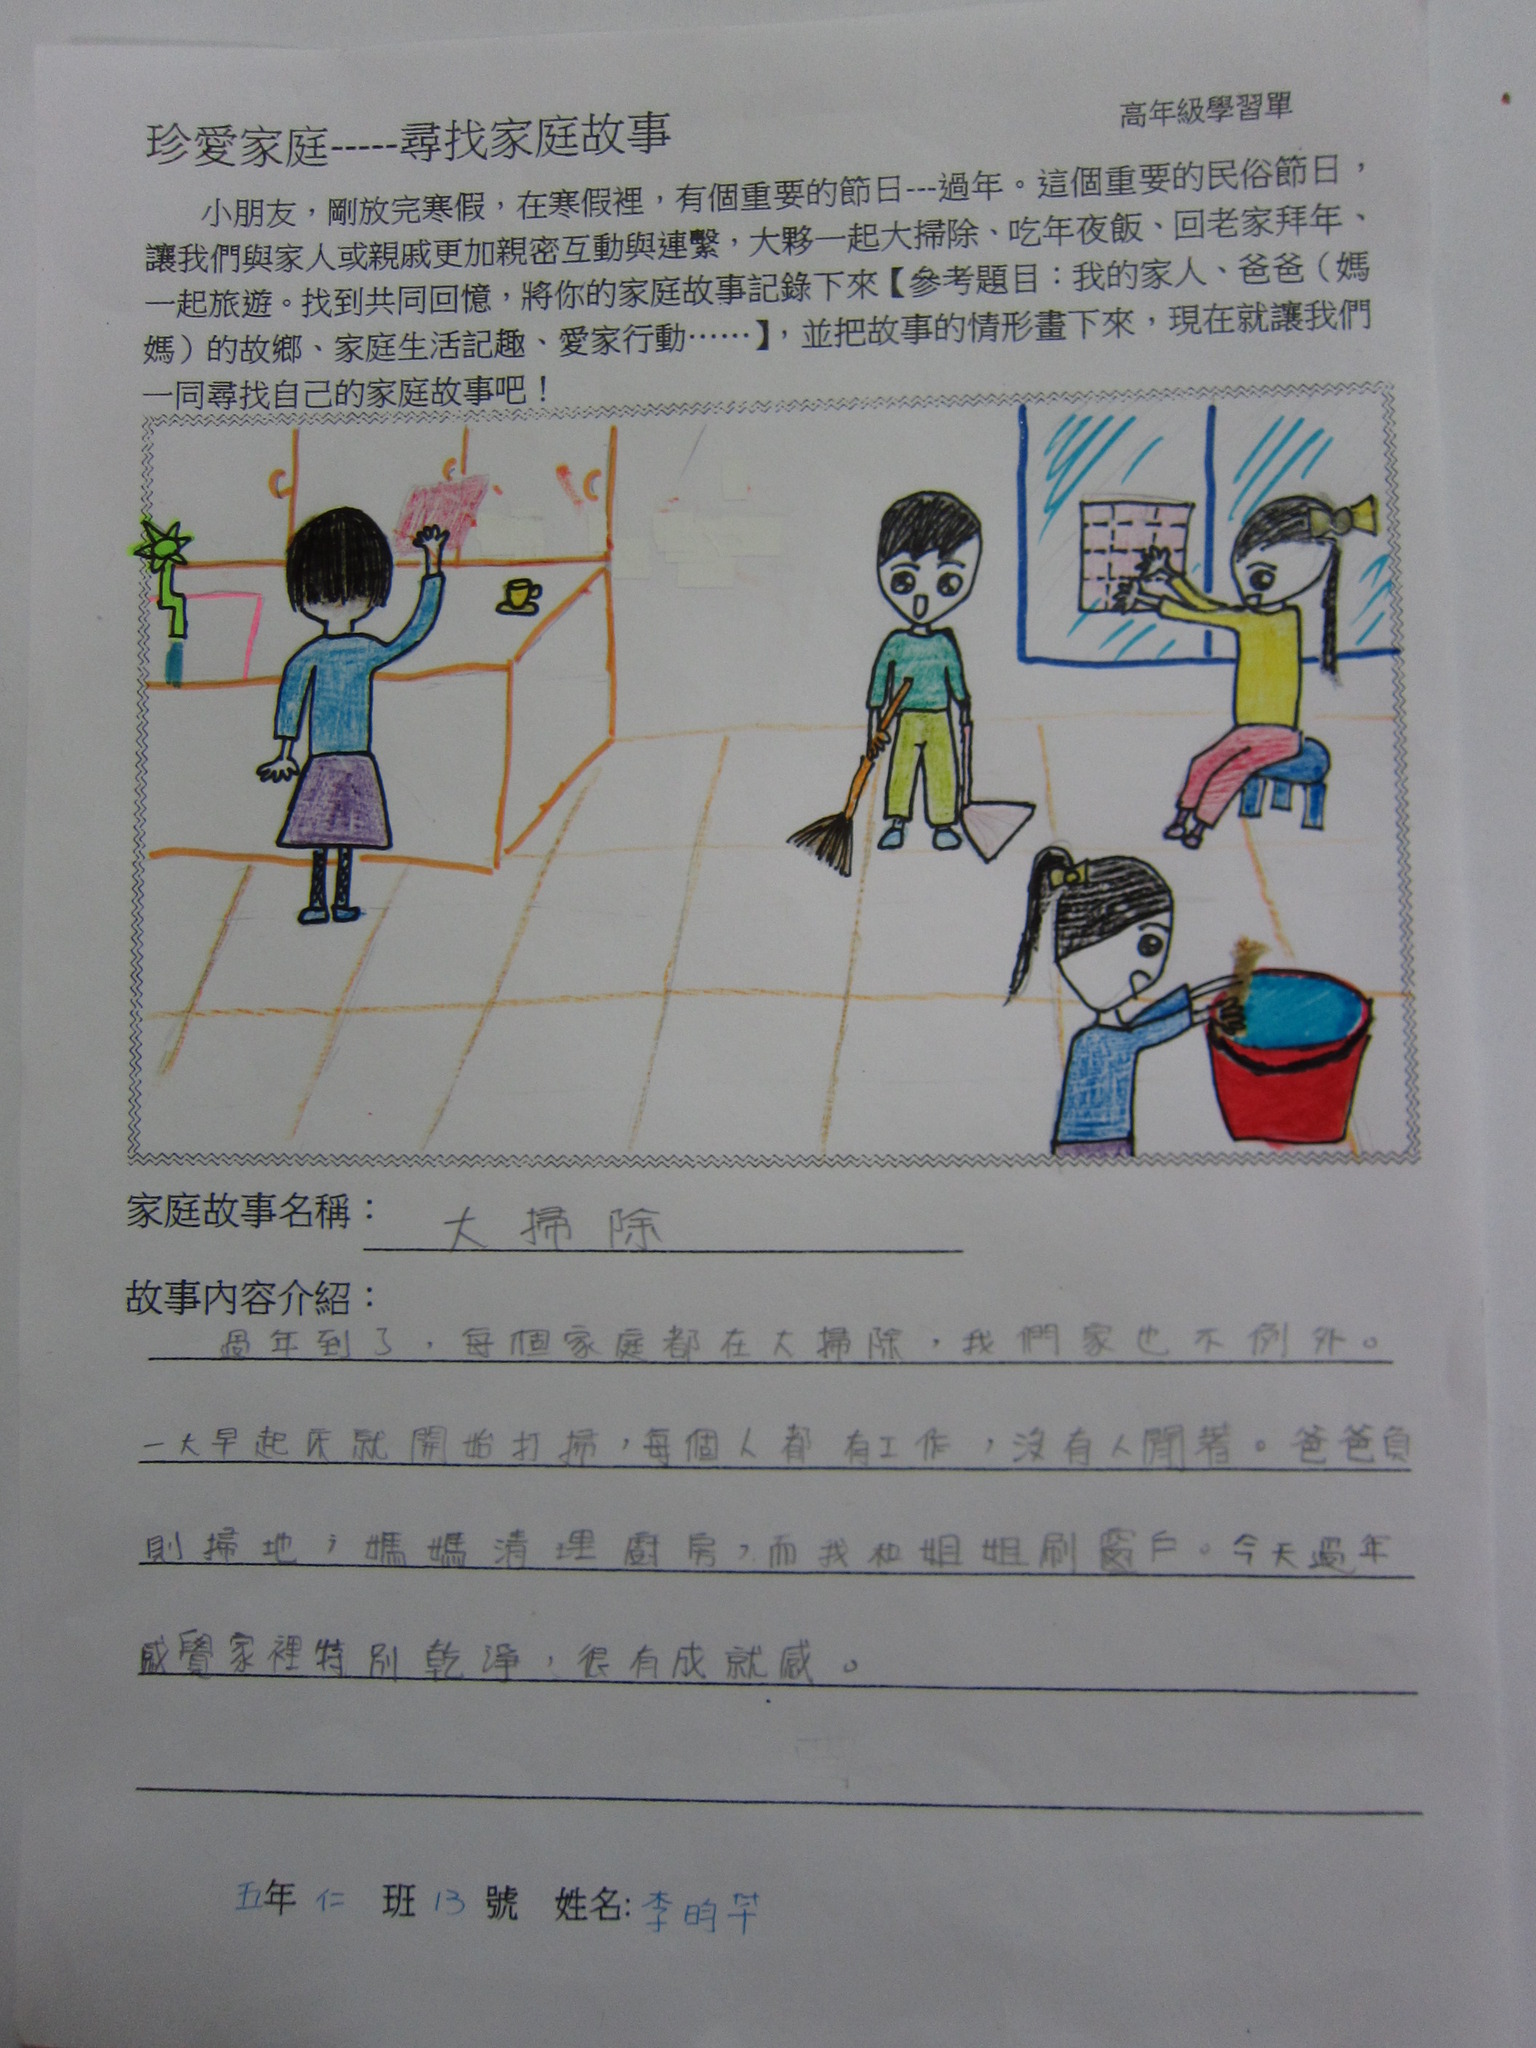 高年級學習單
珍愛家庭-----尋找家庭故事
小朋友，剛放完寒假，在寒假裡，有個重要的節日---過年。這個重要的民俗節日，
讓我們與家人或親戚更加親密互動與連繫，大夥一起大掃除、吃年夜飯、回老家拜年、
一起旅遊。找到共同回憶，將你的家庭故事記錄下來【參考題目：我的家人、爸爸（媽
媽）的故鄉、家庭生活記趣、愛家行動……】，並把故事的情形畫下來，現在就讓我們
一同尋找自己的家庭故事吧！
家庭故事名稱：大掃除
故事內容介紹：
過年到了，每個家庭都在大掃除，我們家也不例外。
一大早起床就開始打掃，每個人都有工作，沒有人閒著。爸爸負
則掃地，媽媽清理廚房，而我和姐姐刷窗戶。今天過年
感覺家裡特別乾淨，很有成就感。
五年仁班13號 姓名:李昀